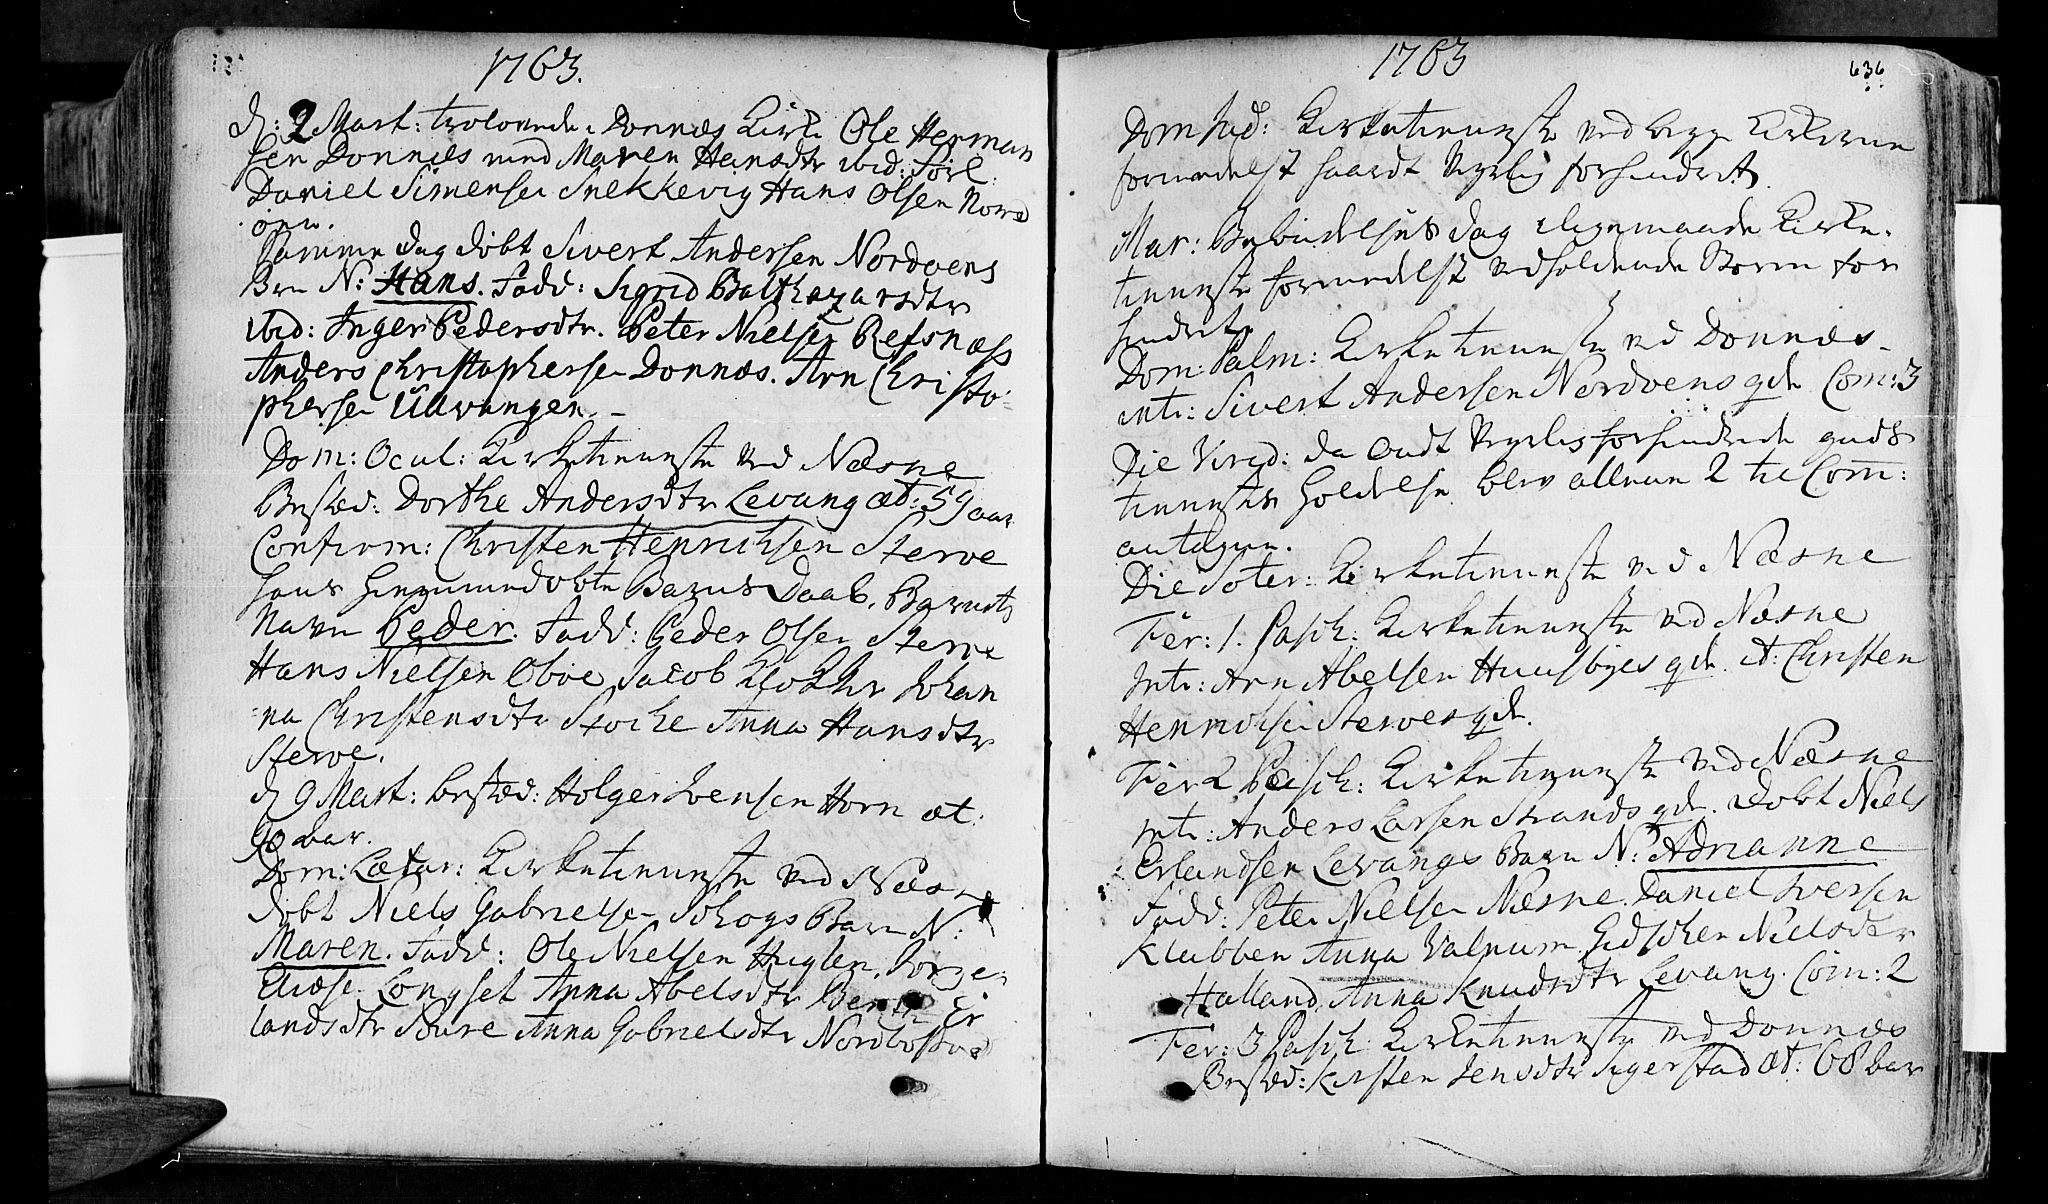 1763.
d: 2 Mart: trolovede i Donnæs Kirke Ole Herman
sen Donnæs med Maren Hansdtr ibid: Forl:
Daniel Simensen Snekkevig Hans Olsen Nord
øen.
Samme dag döbt Sivert Andersen Nordøens
Brn N: Hans. Fadd: Sigrid Balthazarsdtr
ibid: Inger Pedersdtr. Peter Nielsen Refsnæss
Anders Christophersen Donnæs. Arn Christo
phersen Udvangen.
Dom: Ocul: Kirketieneste ved Næsne
Bested: Dorthe Andersdtr Levang æt: 59 aar
Confirm: Christen Henrichsen Sterve
hans hiemmedøbte Barns Daab, Barnets
Navn Peder. Fadd: Peder Olsen Sterve
Hans Nielsen Oboe Jacob Klokker Johan
na Christensdtr Stoche Anna Hansdtr
Sterve.
d 9 Mart: bested: Holger Ivensen Horn æt:
90 aar.
Dom: Lætar: Kirketieneste ved Næsne
döbt Niels Gabrielsen Schogs Barn N:
Maren. Fadd: Ole Nielsen Huglen,
Longset Anna Abelsdtr Er
landsdtr Anna Gabrielsdtr
1763
636
Dom Jud: Kirketieneste ved begge Kirkerne
formedelst haardt Veyrlig forhindret.
Mar: Bebudelses dag iligemaade Kirke-
tieneste formedelst vedholdende Storm for
hindret.
Dom: Palm: Kirketieneste ved Donnæs
intr: Sivert Andersen Nordøens qde. Com: 3
Die Virid: da ondt Veyrlig forhindrede guds
tienestes holdelse blev allene 2 til Com:
antagen.
Die Soter: Kirketieneste ved Næsne
Fer: 1. Pasch: Kirketieneste ved Næsne
Intr: Arn Abelsen Huusbyes qde. it: Christen
Henrichsen Sterves qde.
Fer 2 Pasch: Kirketieneste ved Næsne
intr: Anders Larsen Strands qde. Döbt Niels
Erlandsen Levangs Barn N: Adrianne
Fadd: Peter Nielsen Næsne. Daniel Iversen
Klubben Anna Valnum, Nielsdtr
Halland, Anna Knudsdtr Levang. Com: 2
Fer: 3 Pasch. Kirketieneste ved Donnæs
Bested: Kirsten Jensdtr Sigerstad æt: 68 aar